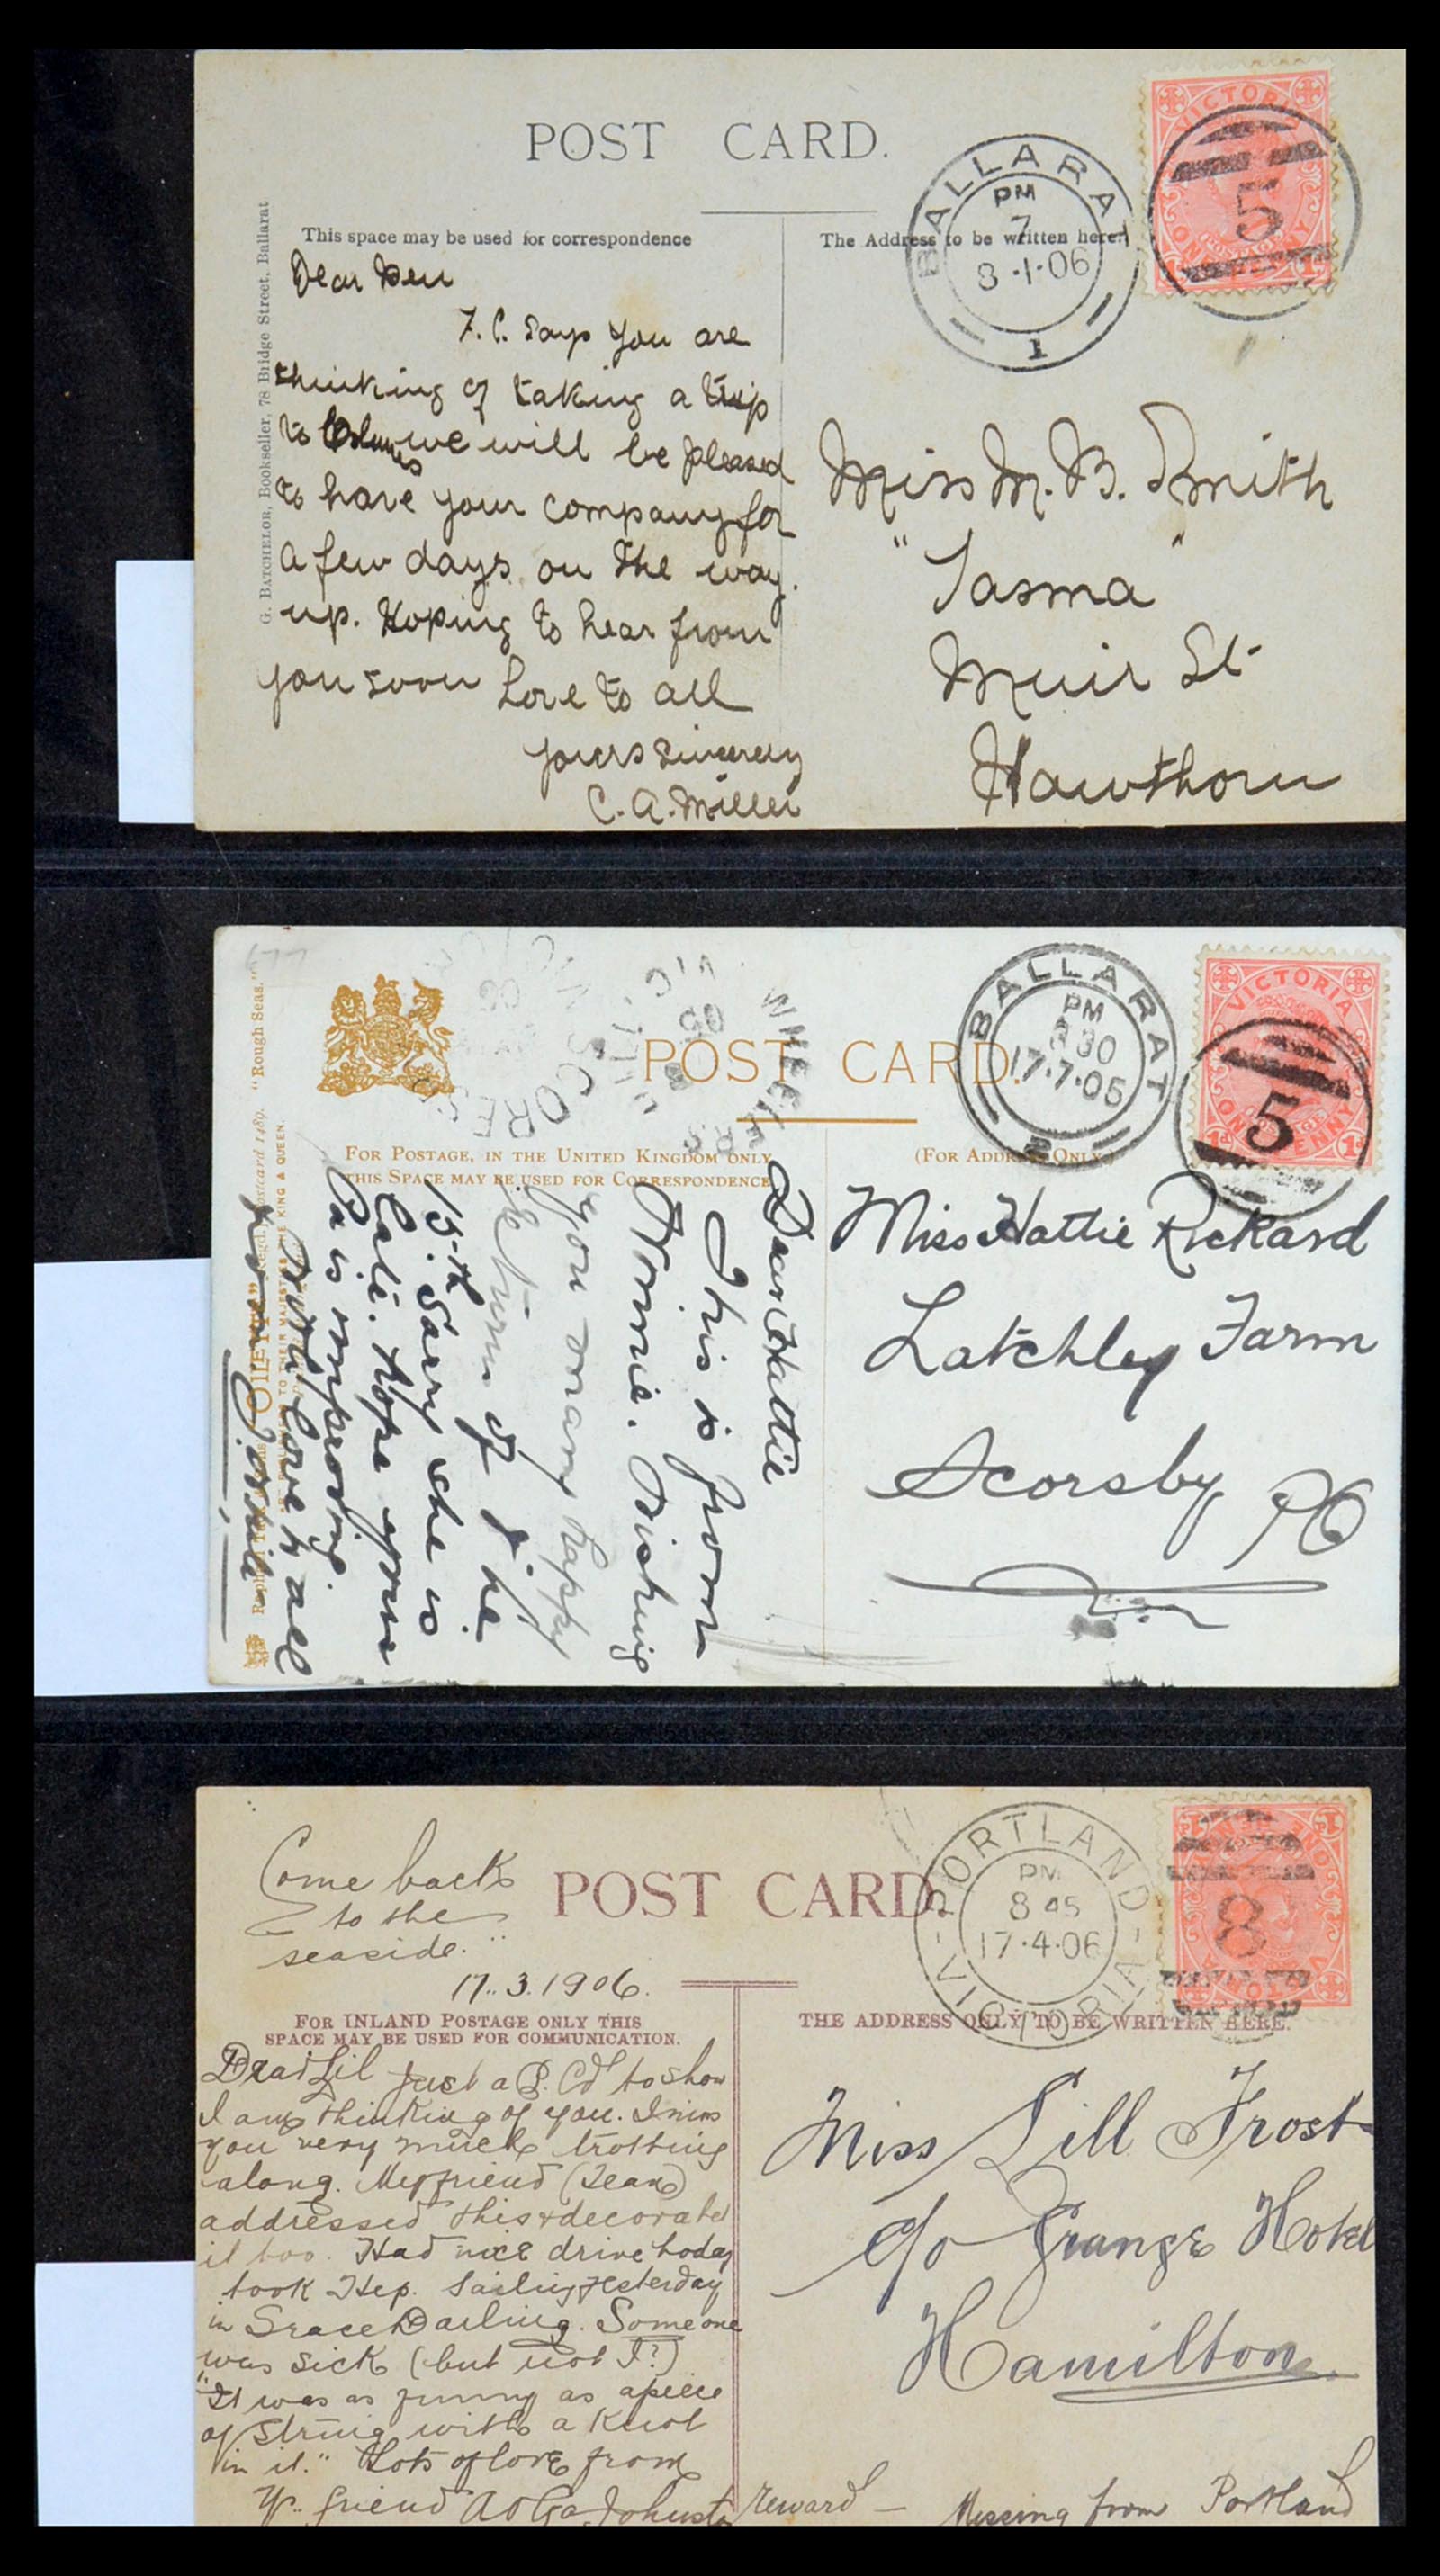 POST CARD.
This space may be used for correspondence
The Address to be written here.
G. BATCHELOR, Bookseller, 78 Bridge Street, Ballarat
BALLARA
PM
7
8·1·06
1
VICTORIA
ONE PENNY
5
Dear
F. C. says you are
thinking of taking a trip
to we will be pleased
to have your company for
a few days on the way
up. Hoping to hear from
you soon Love to all
yours sincerely
C. A. Miller
Miss M. B. Smith
"Tasma"
Muir St
Hawthorn
POST CARD.
"Rough Seas."
FOR POSTAGE, IN THE UNITED KINGDOM ONLY
THIS SPACE MAY BE USED FOR CORRESPONDENCE
(FOR ADDRESS ONLY.)
BALLARAT
PM
30
17·7·05
VICTORIA
ONE PENNY
5
Dear Hattie
This is from
Winnie. Wishing
you many happy
returns of the
15th. Sorry she is
late. Hope your
Pa is improving.
With love to all
from Winnie
Miss Hattie Rickard
Latchley Farm
Scorsby PO
Come back
to the
seaside."
POST CARD.
PORTLAND
PM
8 45
17·4·06
VICTORIA
8
17.3.1906.
FOR INLAND POSTAGE ONLY THIS
SPACE MAY BE USED FOR COMMUNICATION.
THE ADDRESS ONLY TO BE WRITTEN HERE.
Dear Lil Just a P. Cd to show
I am thinking of you. I miss
you very much trotting
along. My friend (Jean)
addressed this & decorated
it too. Had nice drive today
took Hep. Sailing yesterday
in Grace Darling. Someone
was sick (but not I?)
"It was as funny as a piece
of string with a knot
in it." Lots of love from
Yr. friend
Miss Lill Frost
c/o Grange Hotel
Hamilton
reward — Missing from Portland